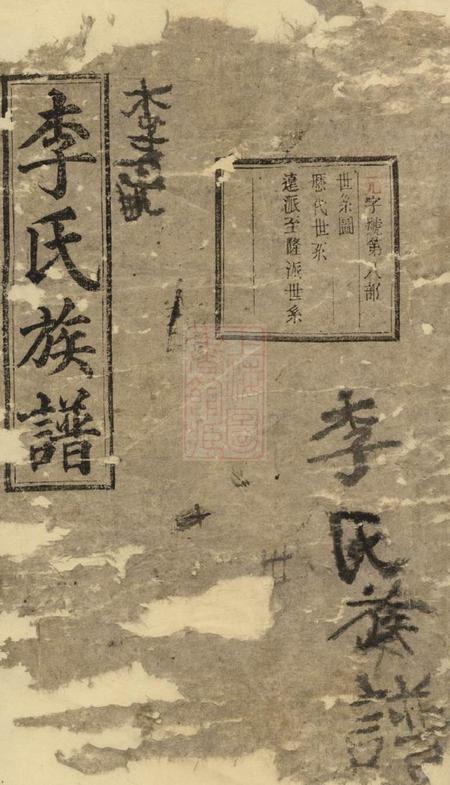 元字號第八部
世系圖
歷代世系
派至隆派世系
李氏族譜
李氏族譜